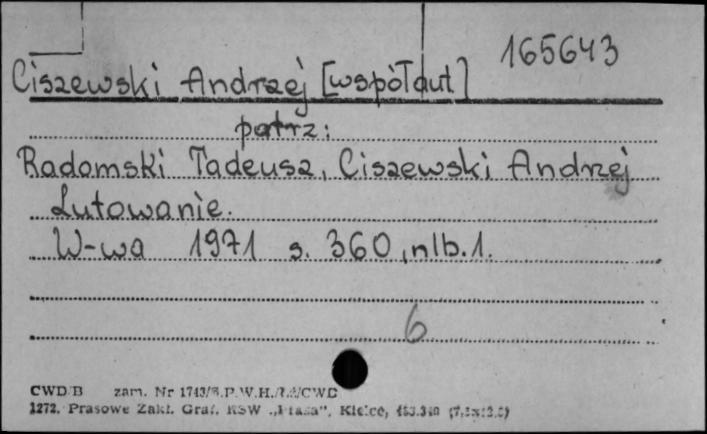 165643
Ciszewski Andrzej [współaut]
patrz:
Radomski Tadeusz, Ciszewski Andrzej
Lutowanie.
W-wa 1971 s. 360, nlb. 1.
6
CWD/B zam. Nr 1743/
1272. Prasowe Zakł. Graf. RSW „Prasa", Kielce,